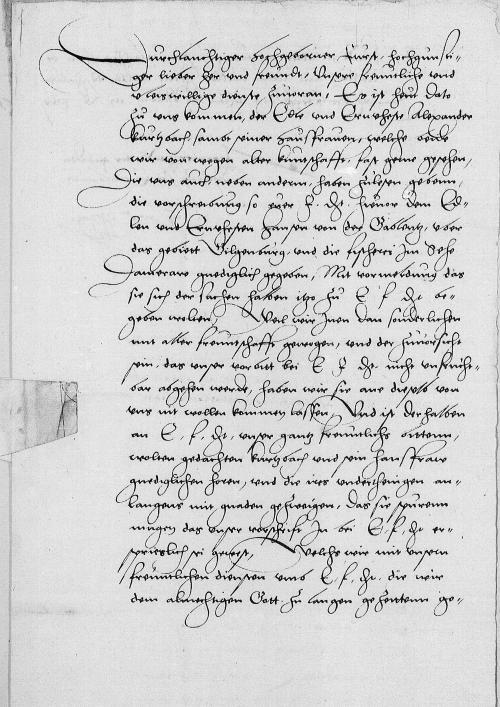 Durchlauchtiger hochgeborner Furst, hochgunsti-
ger lieber her und freundt, Unsere freuntliche und
vleiswillige dienste zuvoran, Es ist heut dato
zu uns kommen, der Edle und Ernveheste Alexander
Kurtzbach sambt seiner hausfrauen, welche beide
wir von wegen alter kuntschafft, fast gerne gesehen,
Die uns auch neben anderm, haben zulesen gebenn,
die vorschreibung, so ewer f. Dt. hievor dem Ed-
len und Ernvhesten Hansen von der Gablentz, uber
das gebiett Gilgenburg, und die fischerei Im Sehe
Damerawe gnediglich gegeben, Mit vormeldung das
sie sich der sachen halben itzo zu E. f. Dt. be-
geben wolten, Weil wir Inen dan sonderlichen
mit alter freuntschafft gewogen, und der zuvorsicht
sein, das unser vorbitt bei E. f. Dt. nicht unfrucht-
bar abgehen werde, haben wir sie ane dieselb von
uns nit wollen kommen lassen, Und ist derhalben
an E. f. Dt. unser gantz freuntlichs bittenn,
wolten gedachten Kurtzbach und sein hausfraw
gnediglichen horen, und die ires underthenigen an-
langens mit gnaden gezweigen, das sie spuren
mugen, das unser vorschrifft In bei E. f. Dt. er-
sprieslich sei gewest, Welchs wir mit unsern
freuntlichen diensten umb E. f. Dt. die wir
dem almechtigen Gott zu langen gezeittenn ge-